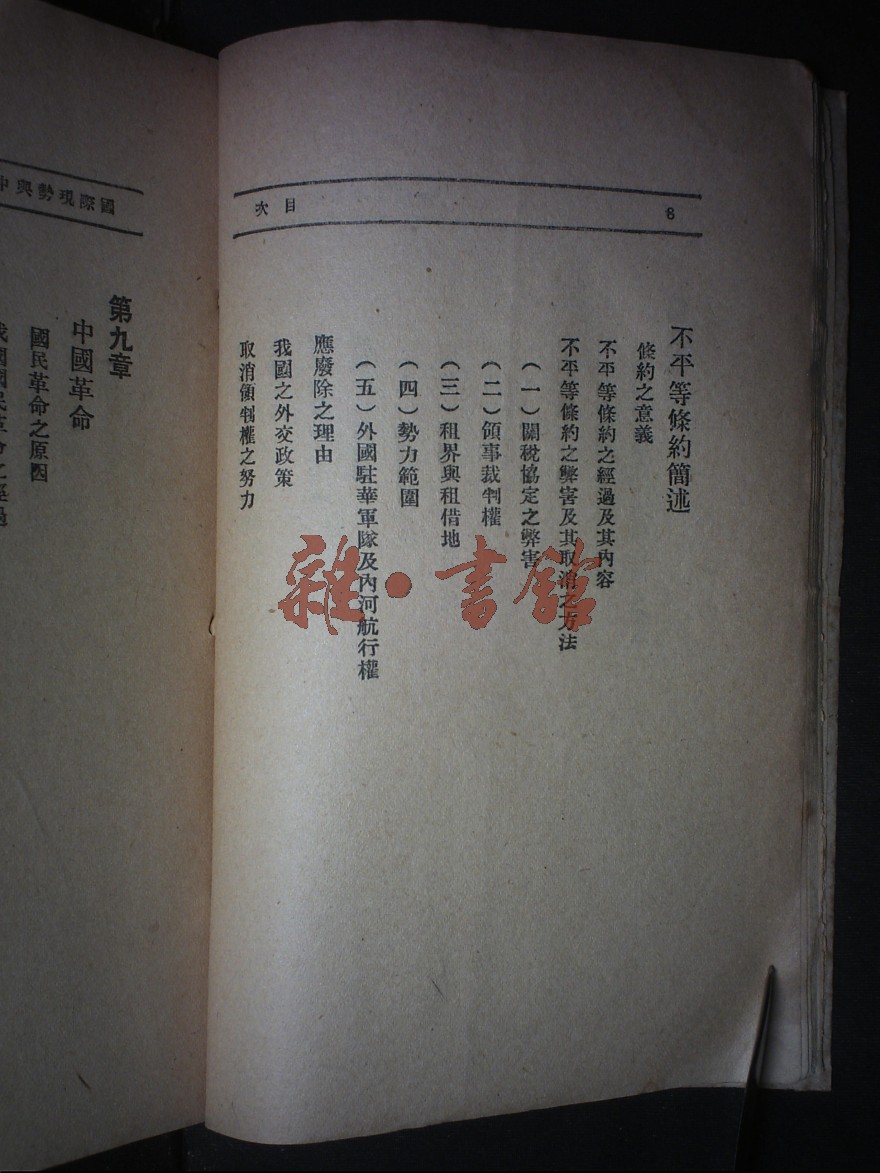 目次
6
不平等條約簡述
條約之意義
不平等條約之經過及其內容
不平等條約之弊害及其取消之方法
(一)關稅協定之弊害
(二)領事裁判權
(三)租界與租借地
(四)勢力範圍
(五)外國駐華軍隊及內河航行權
應廢除之理由
我國之外交政策
取消領判權之努力
國際現勢與中
第九章
中國革命
國民革命之原因
我國國民革命之經過
雜·書館